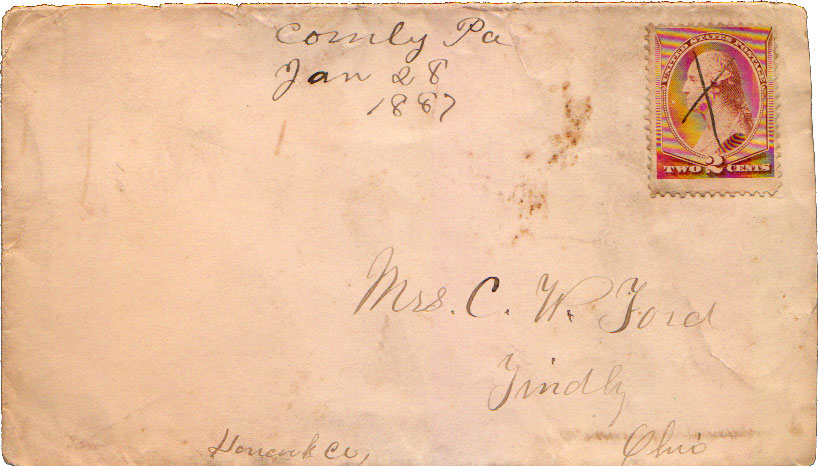 Comly Pa
Jan 28
1887
UNITED STATES POSTAGE
TWO 2 CENTS
Mrs. C. W. Ford
Findly
Ohio
Hancock Co,